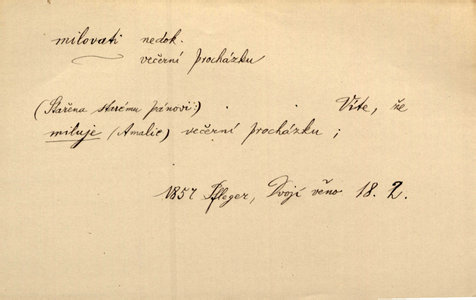 milovati nedok.
večerní procházku
(Stařena starému pánovi:) Víte, že
miluje (Amalie) večerní procházku;
1857 Pfleger, Dvojí věno 18. 2.